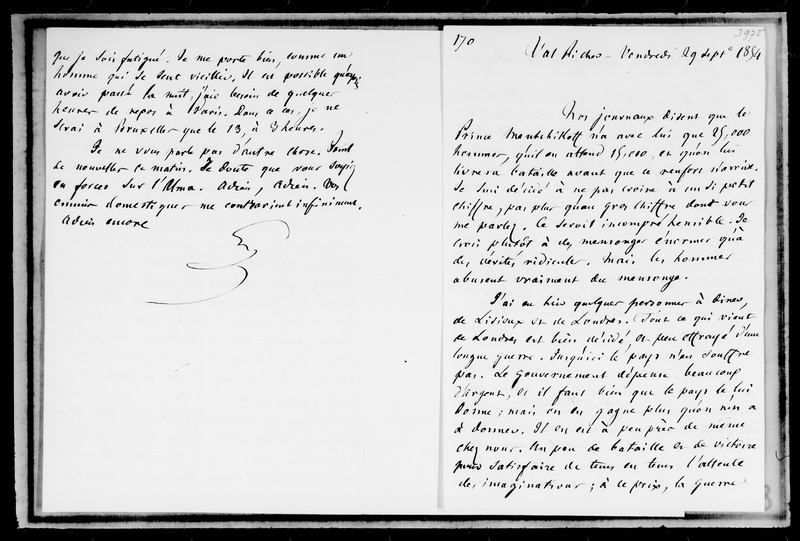 que je sois fatigué. Je me porte bien, comme un
homme qui se sent vieillir. Il est possible qu'après
avoir passé la nuit, j'aie besoin de quelques
heures de repos à Paris. Dans ce cas, je ne
serai à Bruxelles que le 13, à 3 heures.
Je ne vous parle pas d'autre chose. Point
de nouvelles ce matin. Je doute que vous soyiez
en forces sur l'Alma. Adieu, adieu. Vos
ennuis domestiques me contrarient infiniment.
Adieu encore
3975
170
Val Richer - Vendredi 29 Sept. 1854
Nos journaux disent que le
Prince Mentchikoff n'a avec lui que 25,000
hommes, qu'il en attend 15,000, et qu'on lui
livrera bataille avant que ce renfort n'arrive.
Je suis décidé à ne pas croire à un si petit
chiffre, pas plus qu'au gros chiffre dont vous
me parlez. Ce serait incompréhensible. Je
crois plutôt à des mensonges énormes qu'à
des vérités ridicules. Mais les hommes
abusent vraiment du mensonge.
J'ai eu hier quelques personnes à dîner,
de Lisieux et de Londres. Tout ce qui vient
de Londres est bien décidé, et peu effrayé d'une
longue guerre. Jusqu'ici le pays n'en souffre
pas. Le gouvernement dépense beaucoup
d'argent, et il faut bien que le pays le lui
donne ; mais on en gagne plus qu'on n'en a
à donner. Il en est à peu près de même
chez nous. Un peu de bataille et de victoire
pour satisfaire de tems en tems l'attente
des imaginations ; à ce prix, la guerre